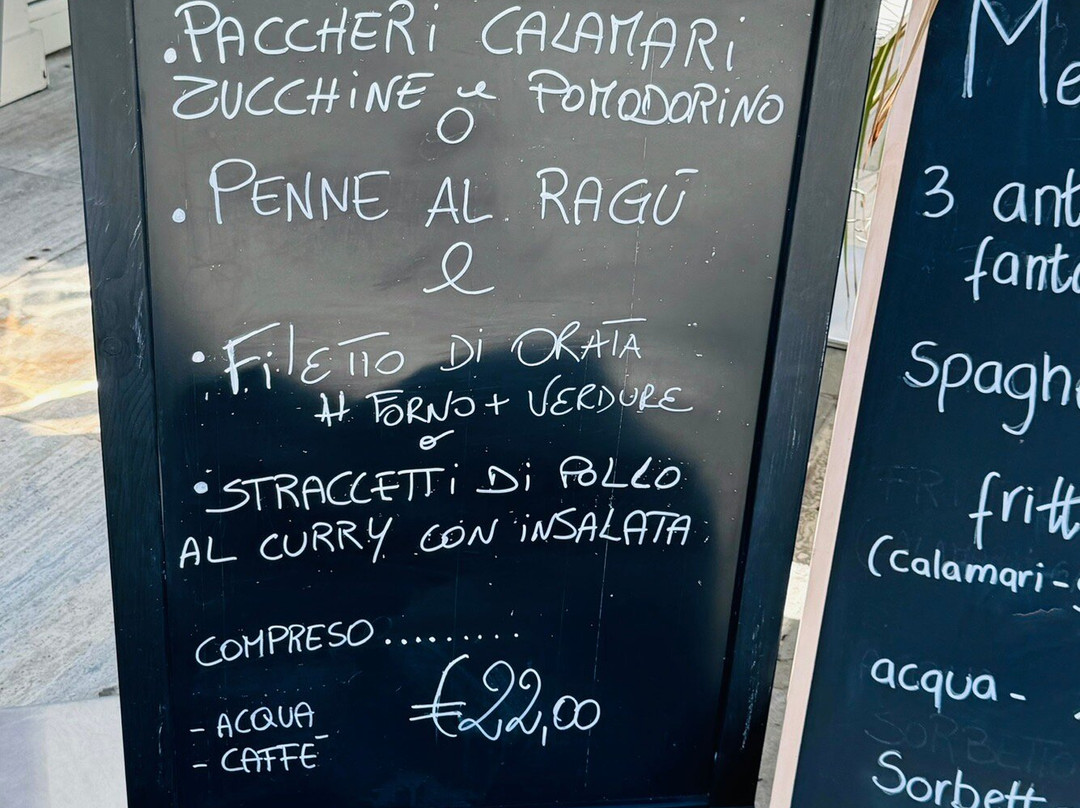 . PACCHERi CALAMARi
ZUCCHiNE e POMODORiNO
O
. PENNE AL RAGŪ
e
• FilETTO Di ORATA
Al FORNO + VERDURE
o
• STRACCETTi Di POLLO
AL CURRY CON iNSALATA
COMPRESO .........
- ACQUA
- CAFFĒ
€22,00
Me
3 ant
fanta
Spagh
fritt
(Calamari -
acqua -
Sorbett